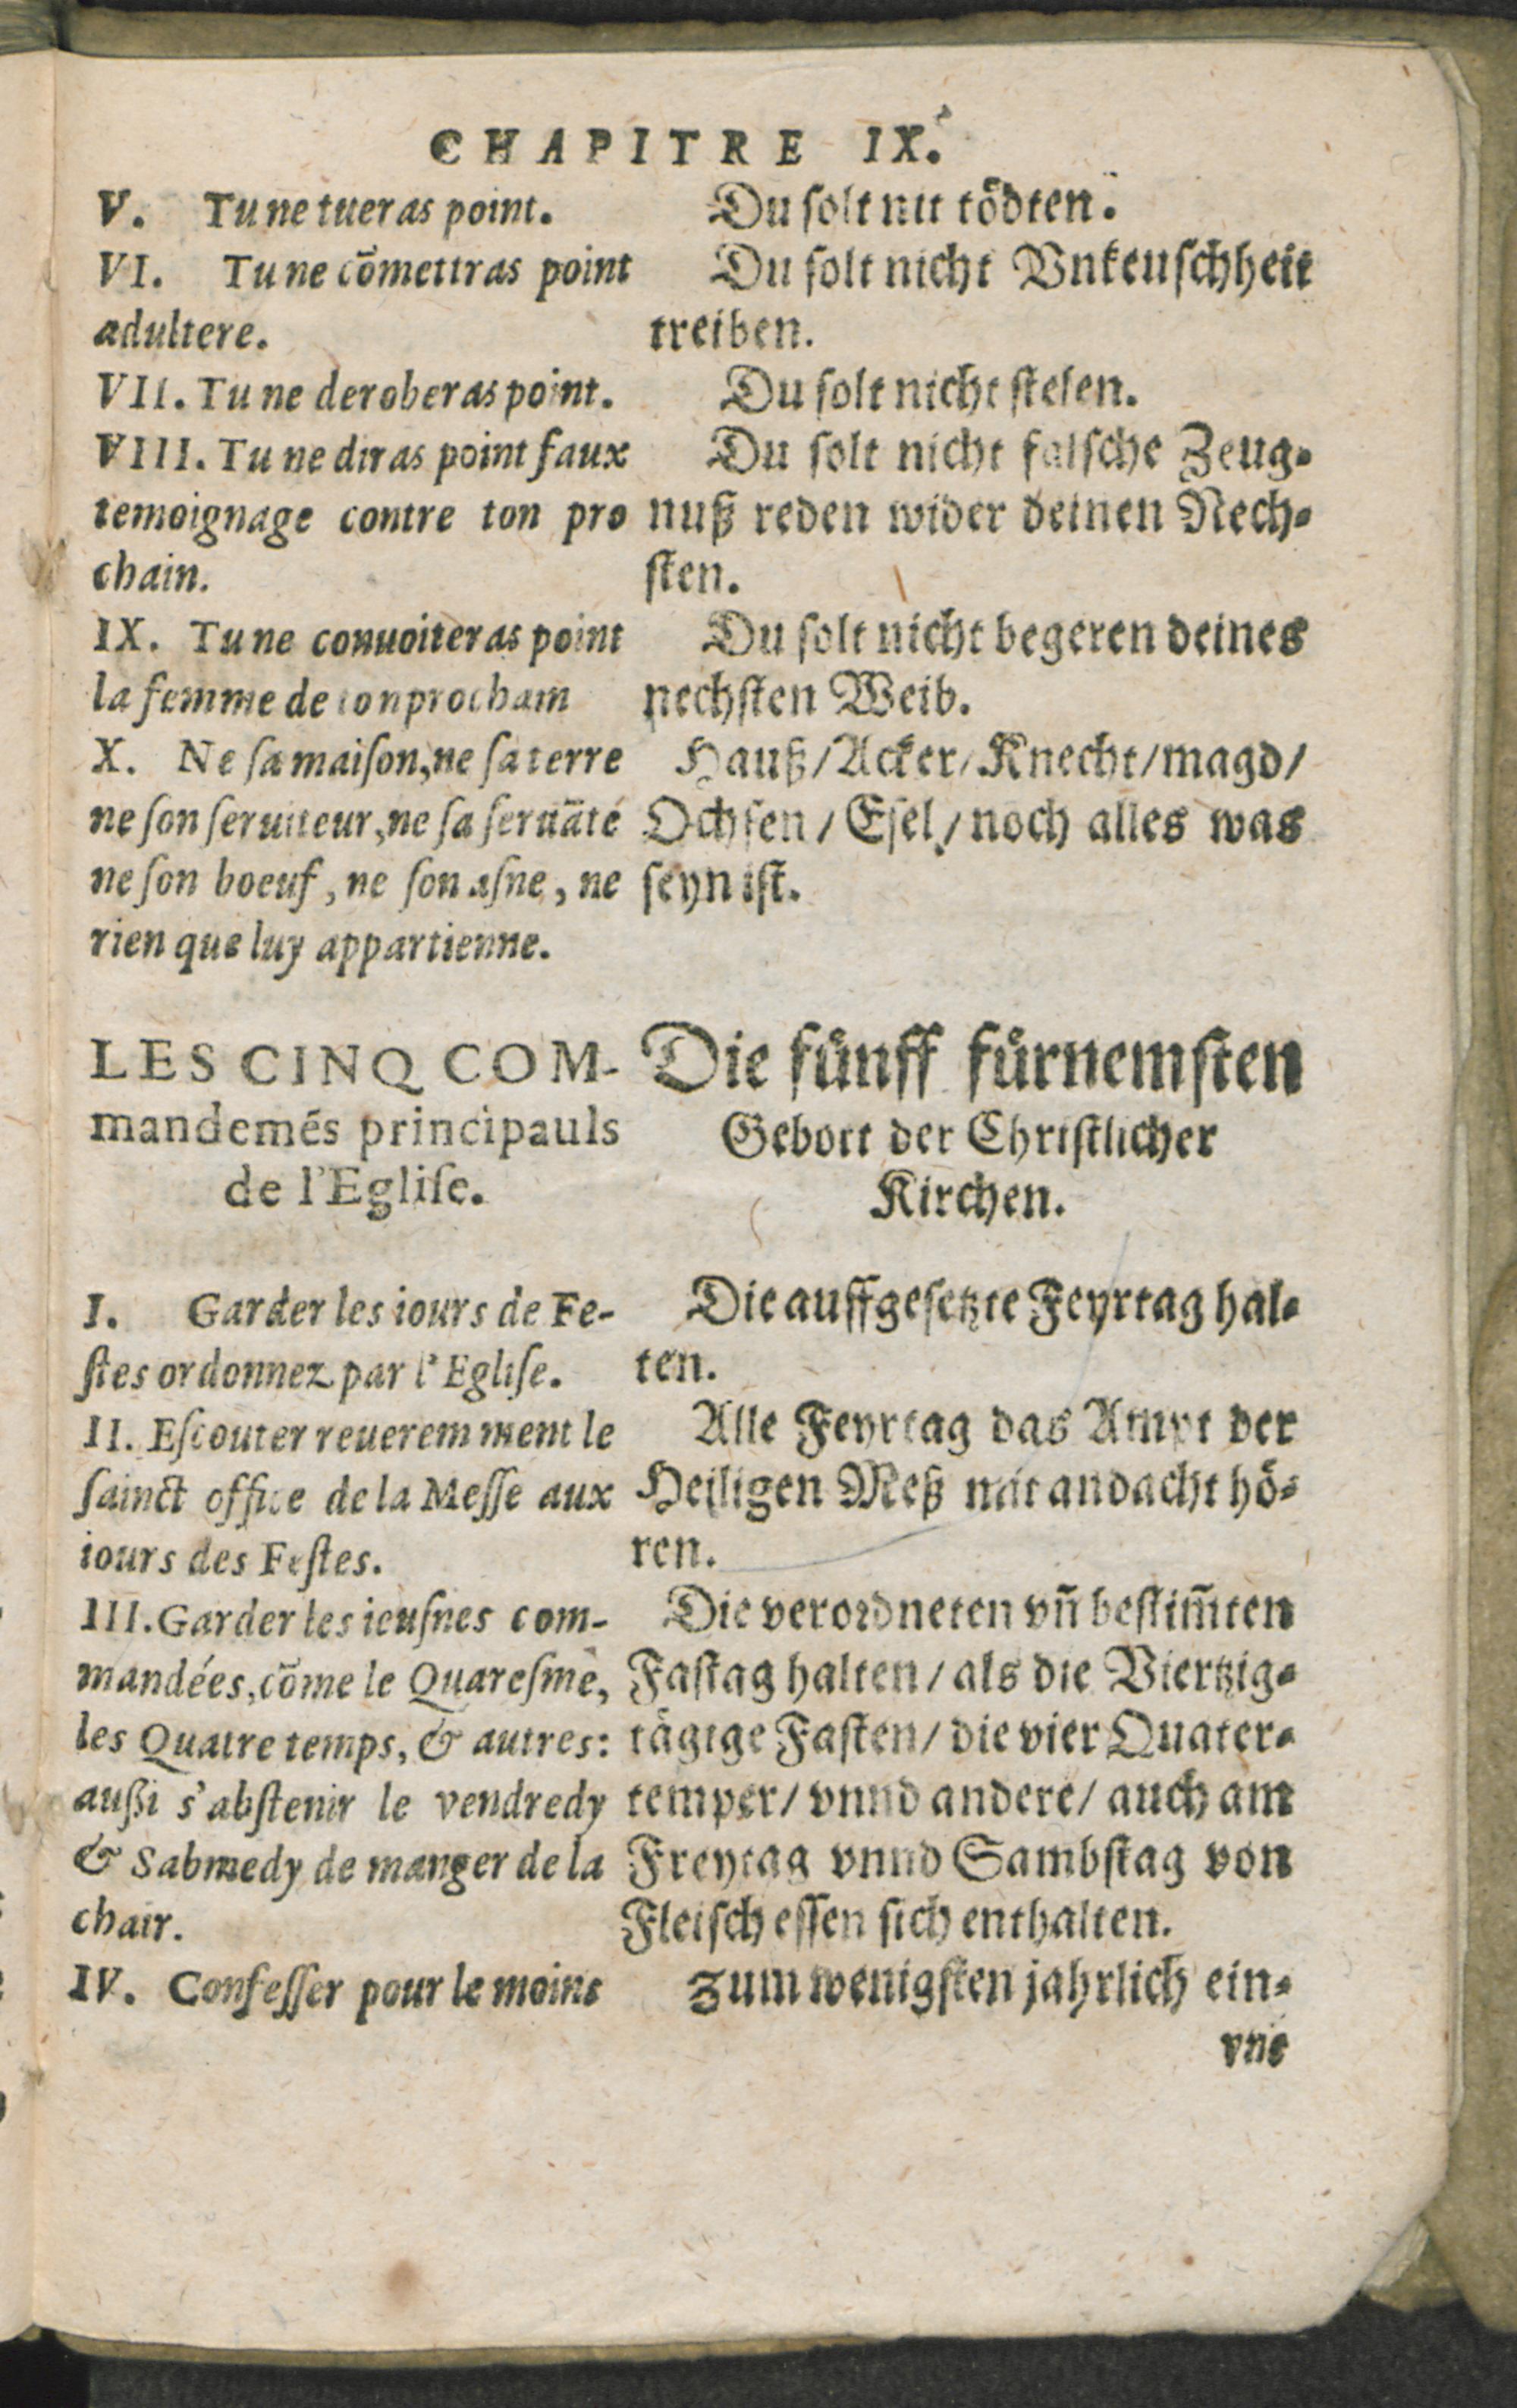 CHAPITRE IX.
V. Tu ne tueras point.
VI. Tu ne cõmettras point
adultere.
VII. Tu ne deroberas point.
VIII. Tu ne diras point faux
temoignage contre ton pro
chain.
IX. Tu ne conuoiteras point
la femme de ton procham
X. Ne sa maiſon, ne sa terre
ne ſon ſeruiteur, ne ſa ſeruãté
ne ſon boeuf, ne ſon aſne, ne
rien que luy appartienne.
LES CINQ COM-
mandemés principauls
de l'Egliſe.
I. Garder les iours de Fe-
ſtes ordonnez par l'Egliſe.
II. Eſcouter reueremment le
ſainct office de la Meſſe aux
iours des Feſtes.
III. Garder les ieuſnes com-
mandées, cõme le Quareſme,
les Quatre temps, & autres:
außi s'abſtenir le vendredy
& Sabmedy de manger de la
chair.
IV. Confeſſer pour le moins
Du ſolt nit tödten.
Du ſolt nicht Vnkeuſchheit
treiben.
Du ſolt nicht ſtelen.
Du ſolt nicht falſche Zeug-
nuß reden wider deinen Nech-
ſten.
Du ſolt nicht begeren deines
nechſten Weib.
Hauß/Acker/Knecht/magd/
Ochſen/Eſel/noch alles was
ſeyn iſt.
Die fünff fürnemſten
Gebott der Chriſtlicher
Kirchen.
Die auffgeſetzte Feyrtag hal-
ten.
Alle Feyrtag das Ampt der
Heiligen Meß mit andacht hö-
ren.
Die verordneten vñ beſtim̃ten
Faſtag halten/als die Viertzig-
tägige Faſten/die vier Quater-
temper/vnnd andere/auch am
Freytag vnnd Sambſtag von
Fleiſch eſſen ſich enthalten.
Zum wenigſten jahrlich ein-
vne